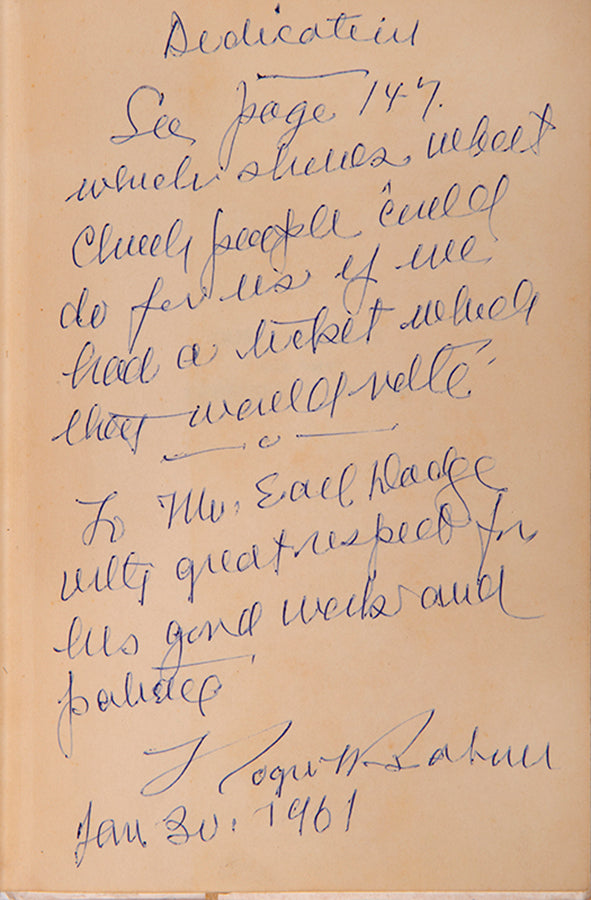 Dedication
See page 147.
which shows what
Church people could
do for us if we
had a ticket which
they would vote
To Mr. Earl Dodge
with great respect for
his good work and
Roger W. Babson
Jan. 30. 1961